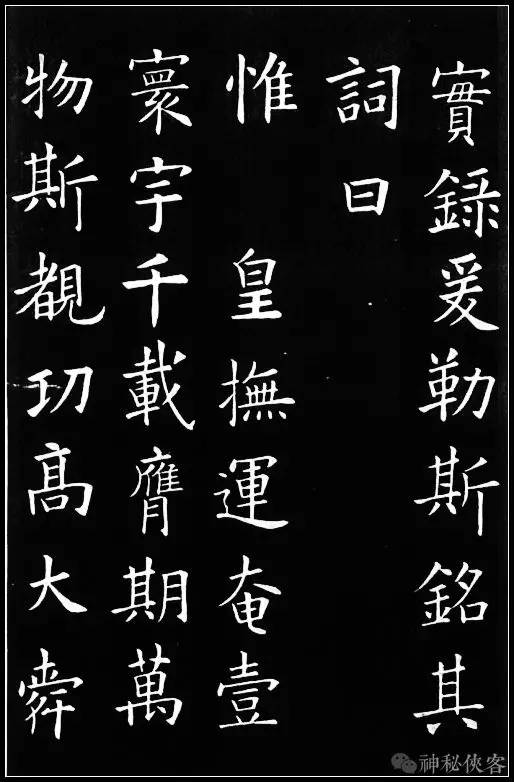 實録爰勒斯銘其
詞曰
惟 皇撫運奄壹
寰宇千載膺期萬
物斯覩功高大舜
神秘俠客